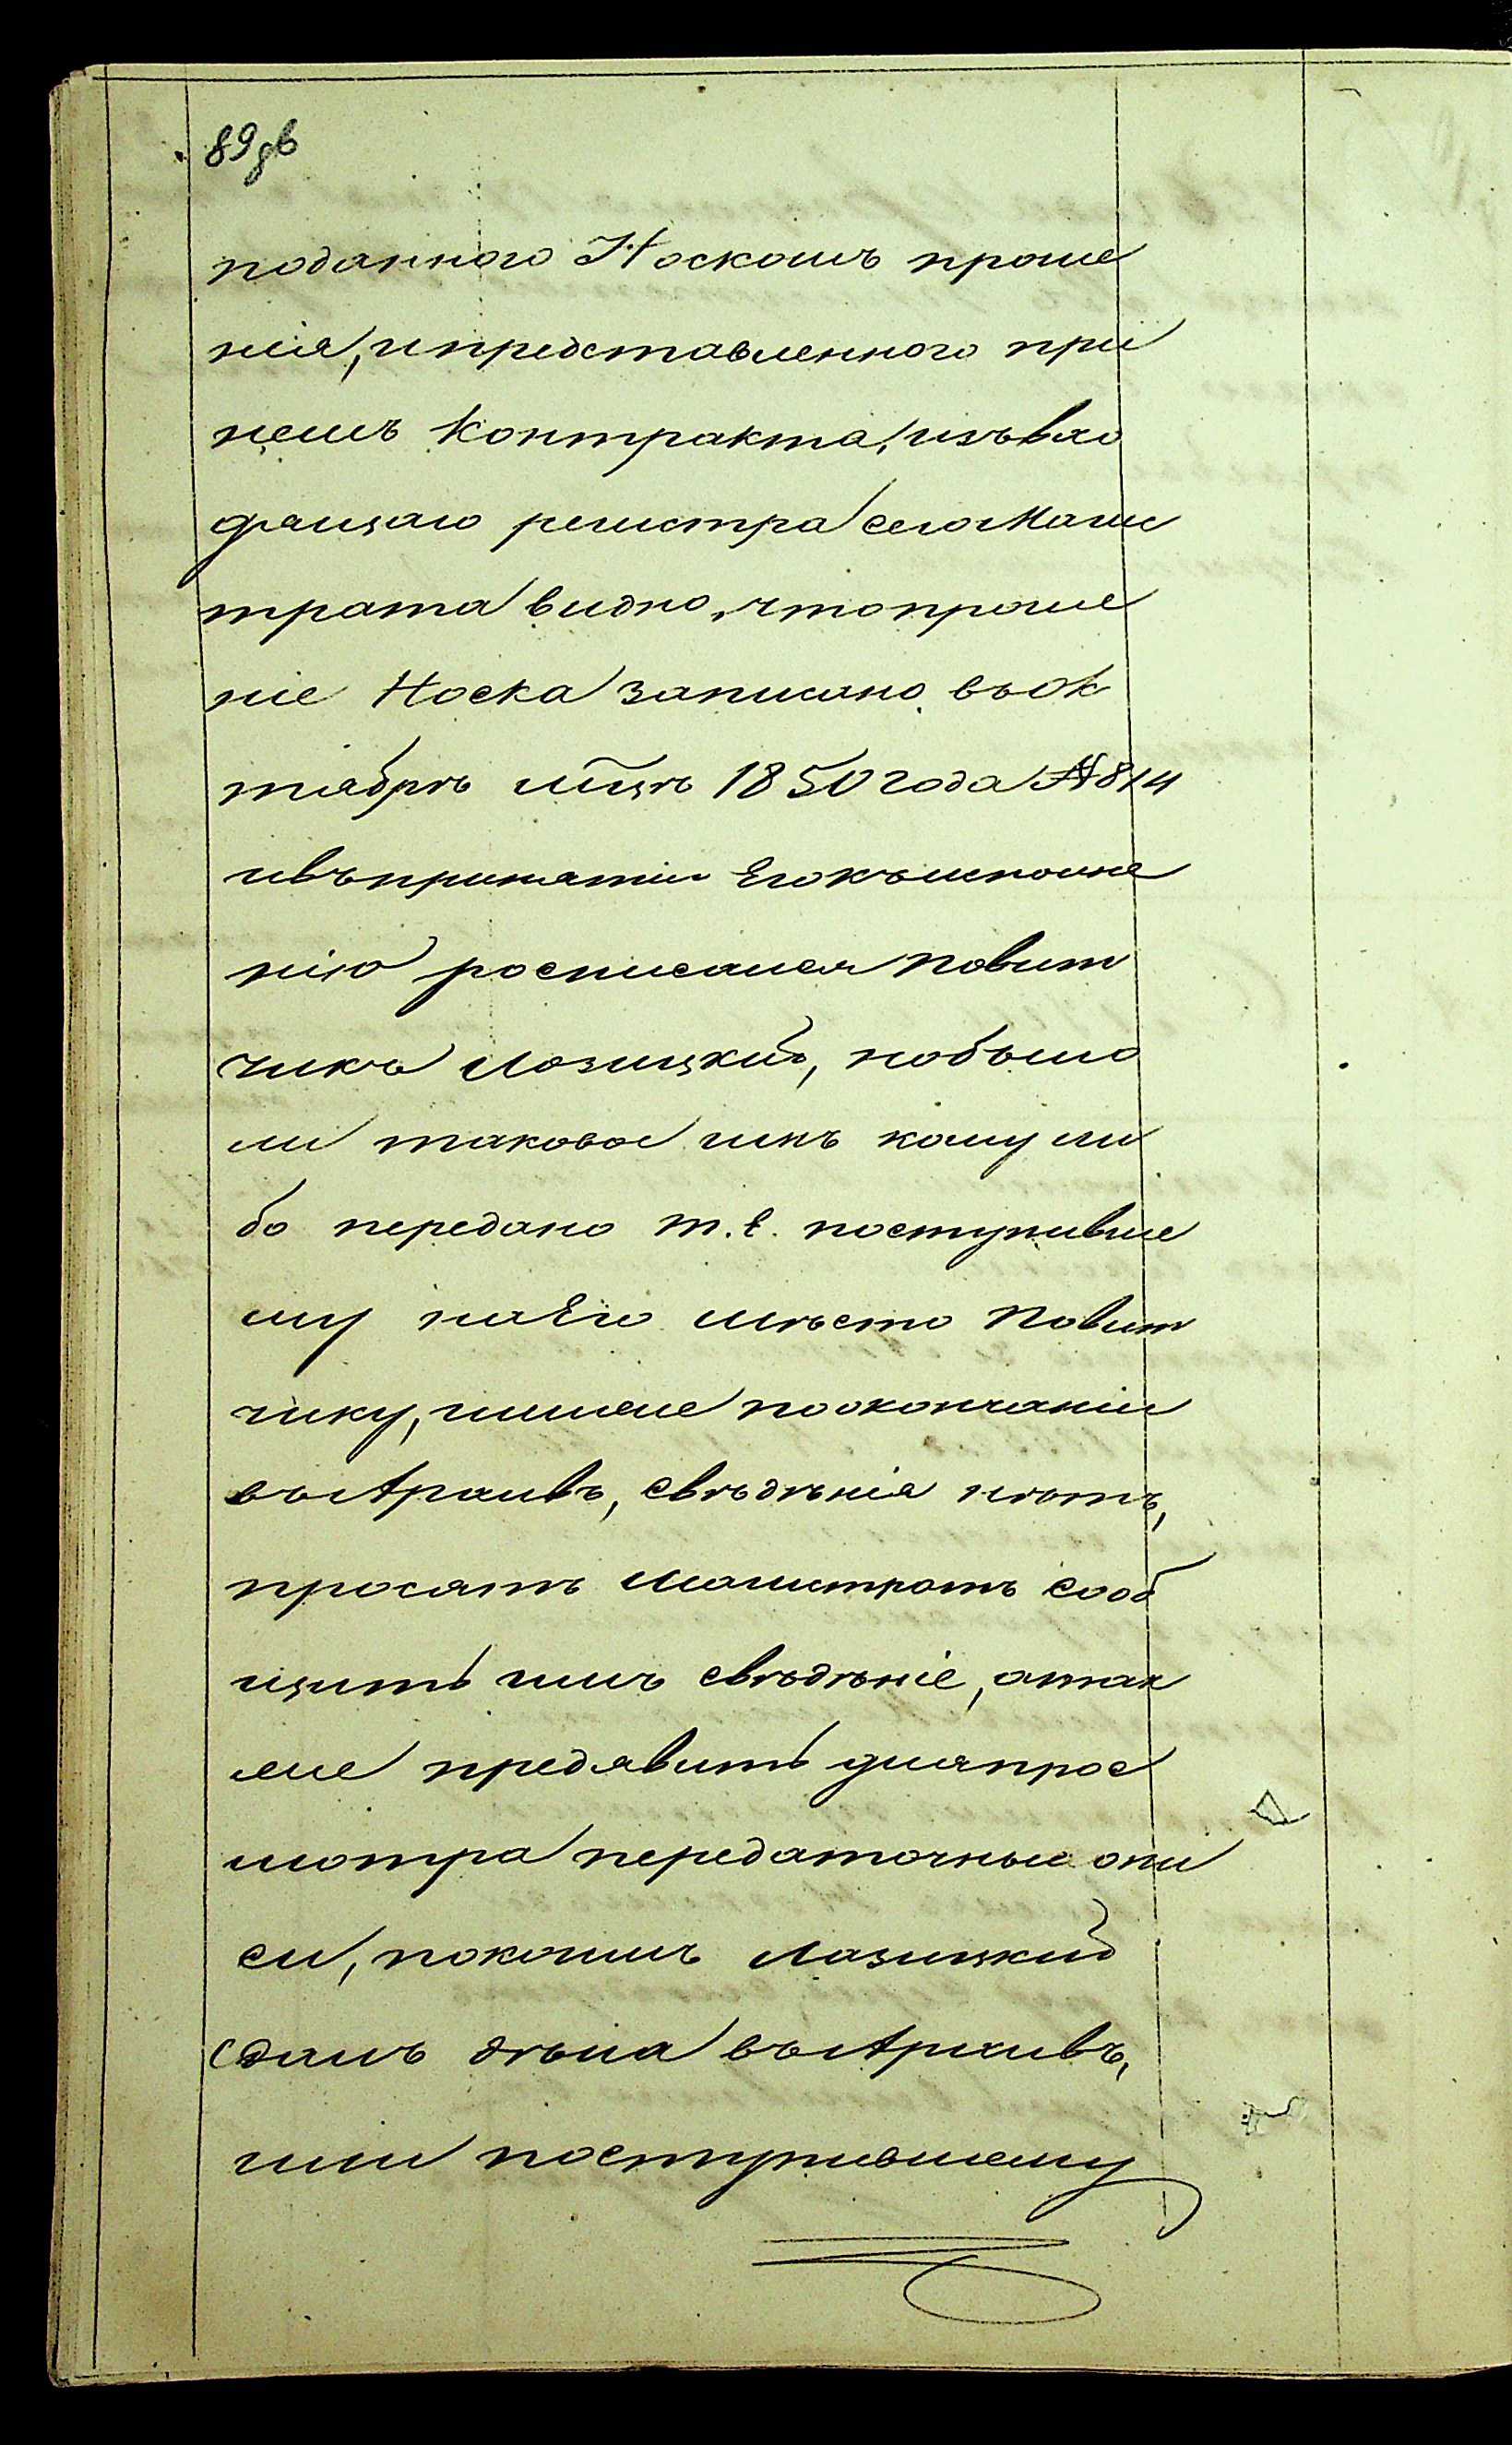 89дв
поданного Носкомъ проше
нія, и представленного при
немъ Контракта, изъ вхо
дящаго регистра сего Магис
трата видно, что проше
ніе Носка записано въ Ок
тябрѣ м̃цѣ 1850 года № 814
и въ принятіи Его къ исполне
нію росписался Повит
чикъ Лозицкій, но было
ли таковое имъ кому ли
бо передано т. е. поступивше
му на Его мѣсто Повит
чику, или же по окончаніи
въ Архивъ, свѣдѣнія нѣтъ,
просятъ Магистратъ сооб
щить имъ свѣдѣніе, а так
же предявить для прос
мотра передаточные опи
си, по коимъ Лазицкій
сдалъ дѣла въ Архивъ,
или поступившему